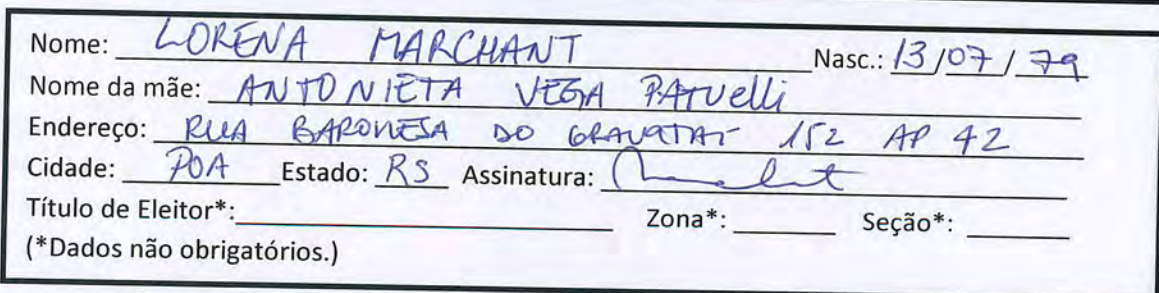 Nome: LORENA MARCHANT Nasc.: 13/07/79
Nome da mãe: ANTONIETA VEGA PATUELLI
Endereço: RUA BARONESA DO GRAVATAI 152 AP 42
Cidade: POA Estado: RS Assinatura:
Título de Eleitor*: Zona*: Seção*:
(*Dados não obrigatórios.)